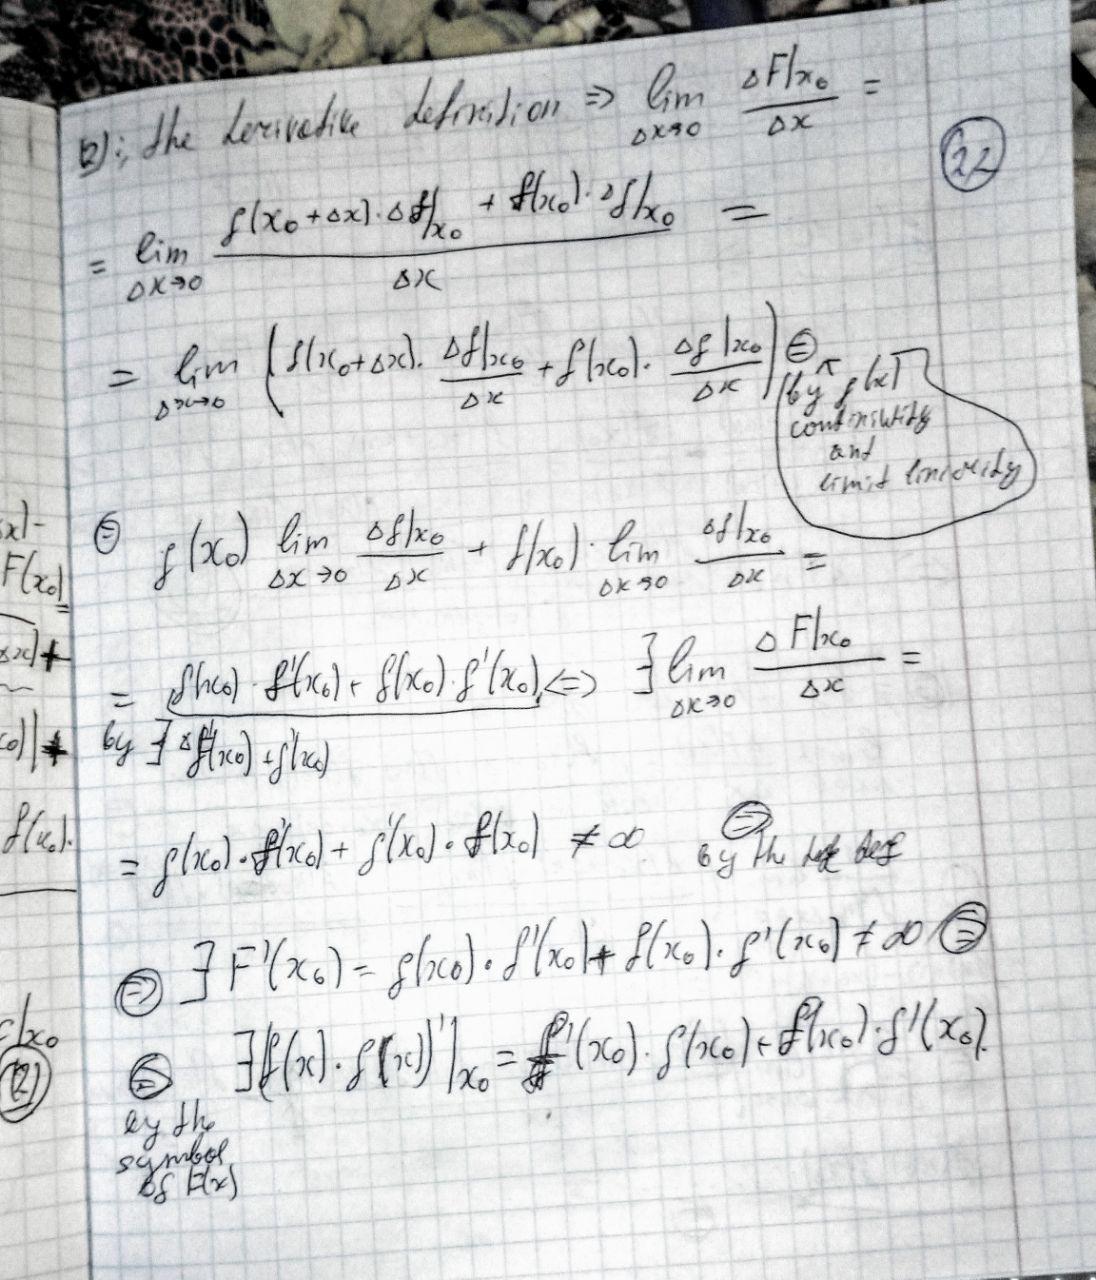 (2); the derivative definition ⇒ lim Δx→0 ΔF|x₀ / Δx =
(22)
= lim Δx→0 g(x₀+Δx)·Δf|x₀ + f(x₀)·Δg|x₀ / Δx =
= lim Δx→0 (g(x₀+Δx)· Δf|x₀ / Δx + f(x₀)· Δg|x₀ / Δx) =
by g(x)
continuity
and
limit linearity
= g(x₀) lim Δx→0 Δf|x₀ / Δx + f(x₀)· lim Δx→0 Δg|x₀ / Δx =
= g(x₀)·f'(x₀) + f(x₀)·g'(x₀) <=> ∃ lim Δx→0 ΔF|x₀ / Δx =
by ∃ f'(x₀) + g'(x₀)
= g(x₀)·f'(x₀) + g'(x₀)·f(x₀) ≠ ∞ ⇔
by the def
⇔ ∃ F'(x₀) = g(x₀)·f'(x₀) + f(x₀)·g'(x₀) ≠ ∞ ⇔
⇔ ∃ (f(x)·g(x))'|x₀ = f'(x₀)·g(x₀) + f(x₀)·g'(x₀).
by the
symbol
of F(x)
x)-
F(x₀)
=
Δx)+
x₀)|+
f(x₀).
|x₀
(2)